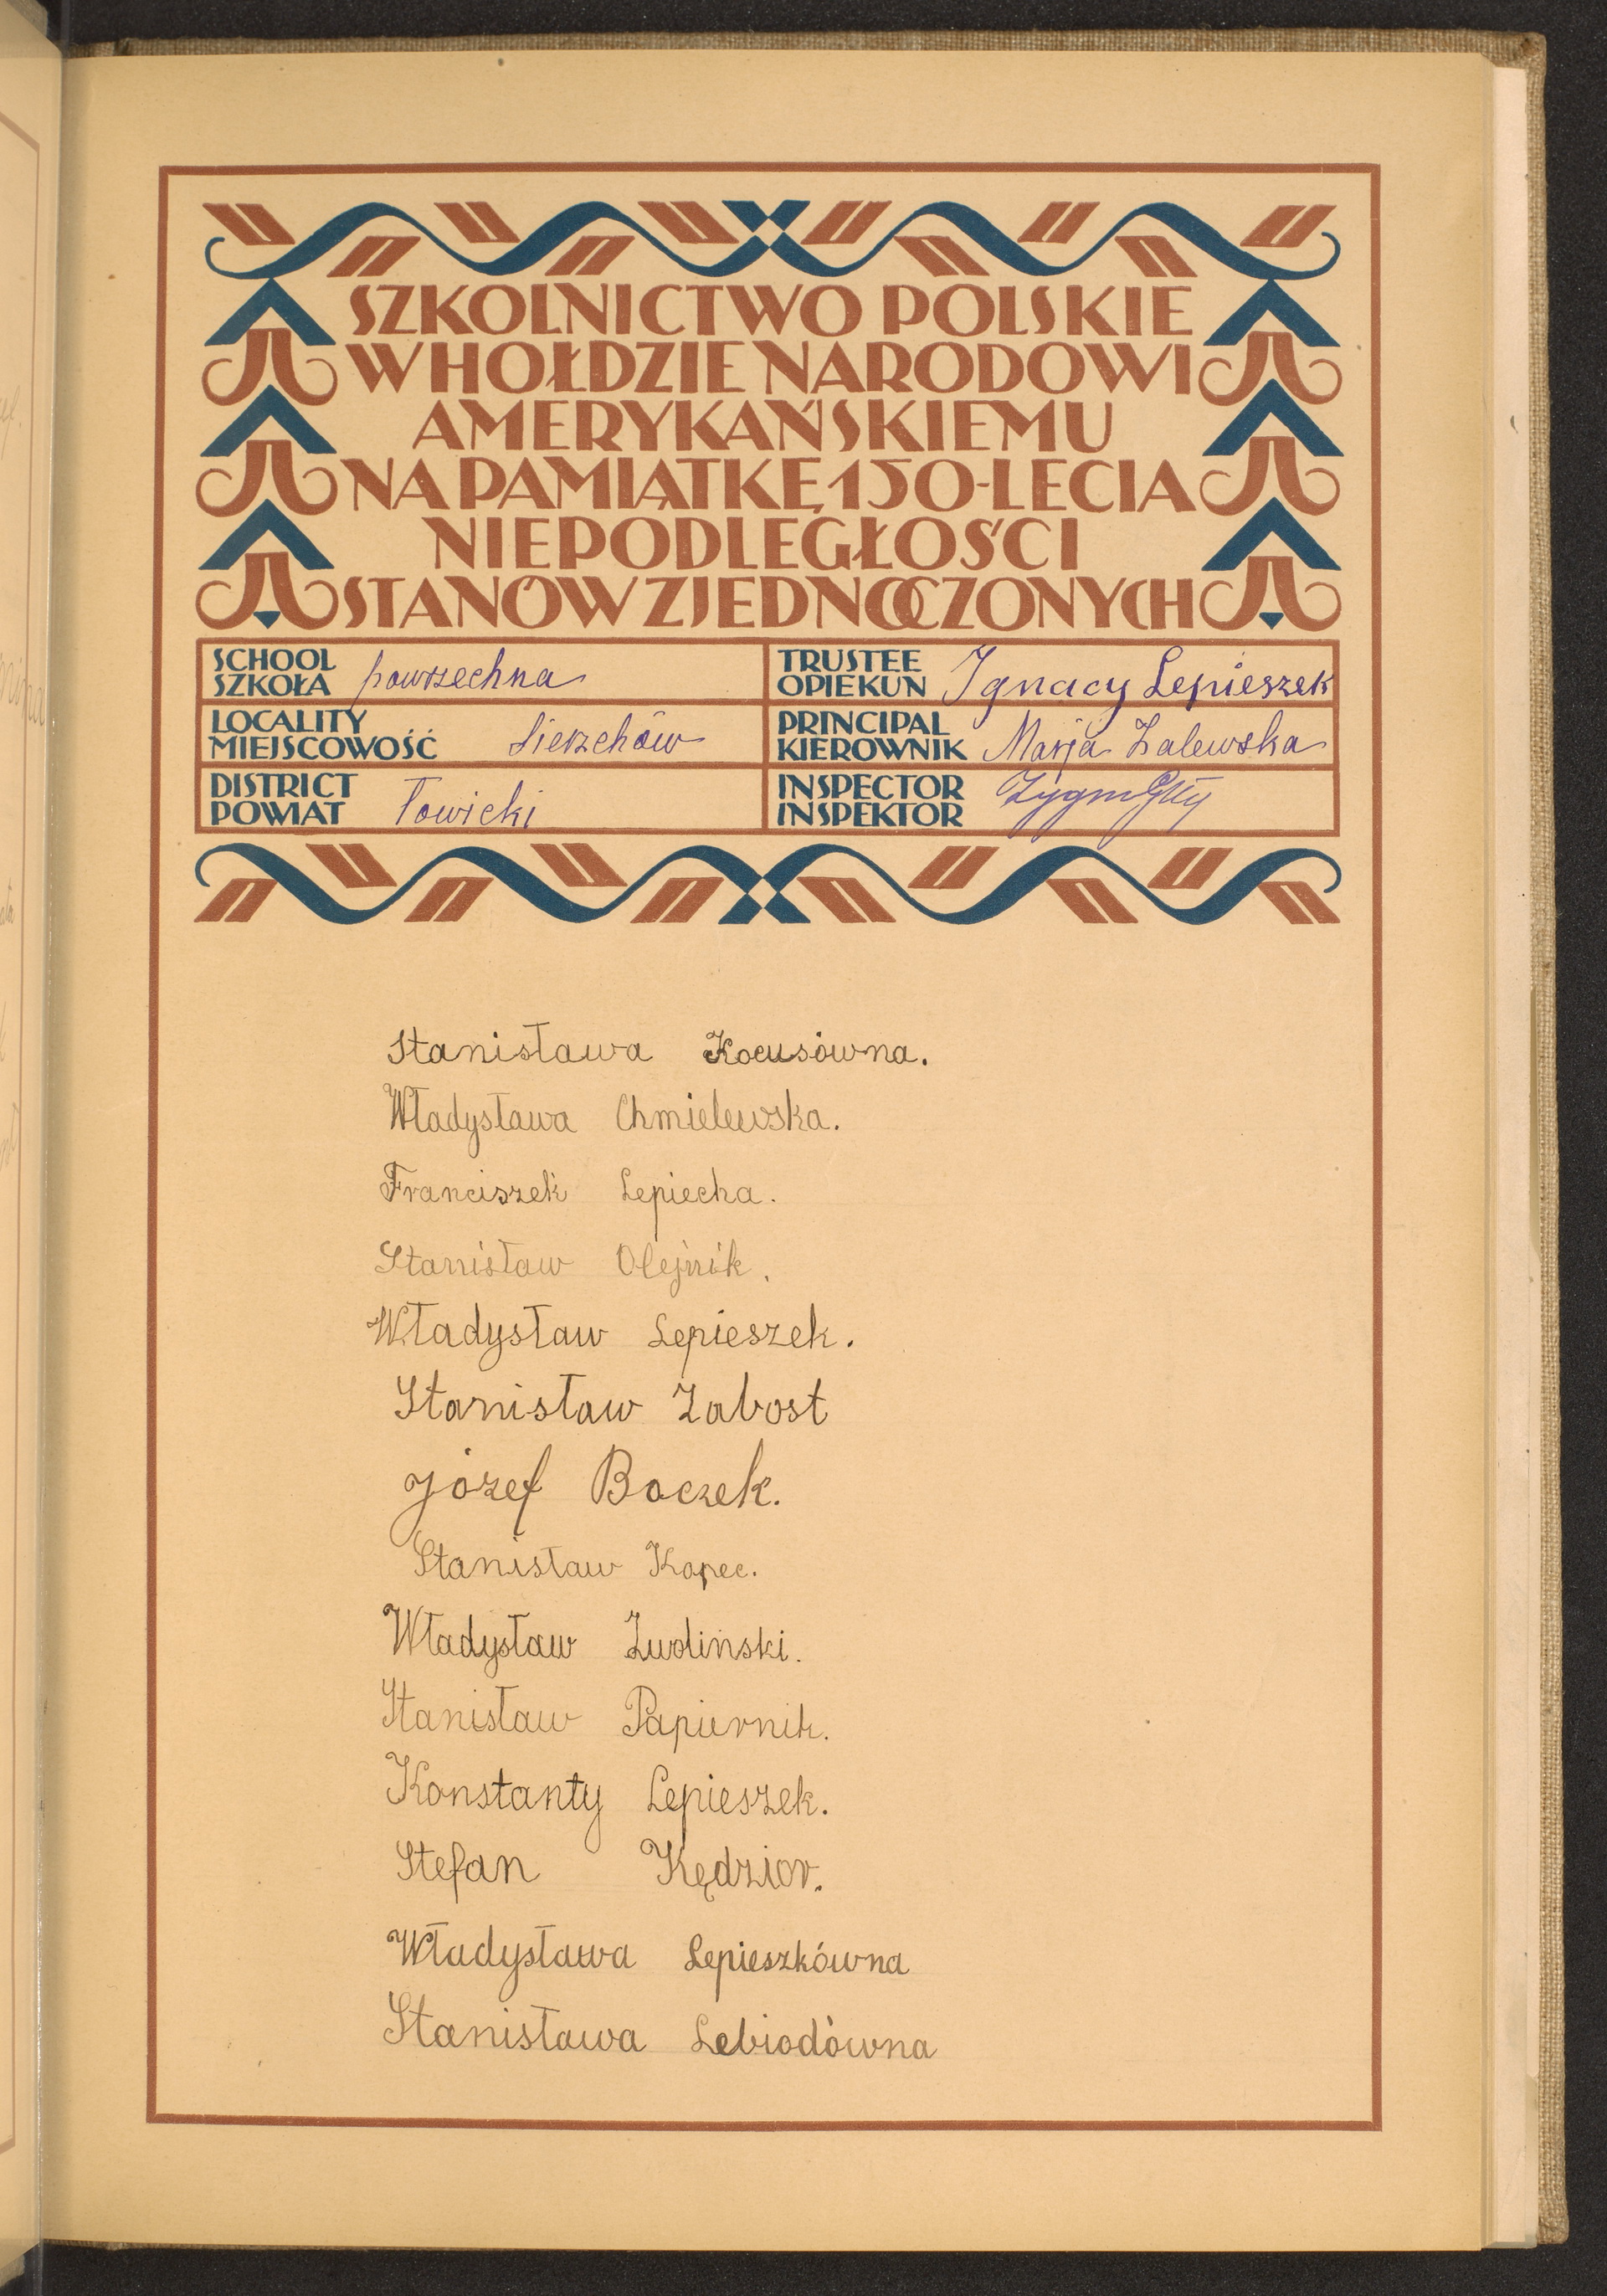 SZKOLNICTWO POLSKIE
W HOŁDZIE NARODOWI
AMERYKAŃSKIEMU
NA PAMIĄTKĘ 150-LECIA
NIEPODLEGŁOŚCI
STANÓW ZJEDNOCZONYCH
SCHOOL
SZKOŁA powszechna
TRUSTEE
OPIEKUN Ignacy Lepieszek
LOCALITY
MIEJSCOWOŚĆ Sierzchów
PRINCIPAL
KIEROWNIK Marja Zalewska
DISTRICT
POWIAT Łowicki
INSPECTOR
INSPEKTOR
Stanisława Kocusówna.
Władysława Chmielewska.
Franciszek Lepiecha.
Stanisław Olejnik.
Władysław Lepieszek.
Stanisław Zabost
Józef Boczek.
Stanisław Kopec.
Władysław Zwoliński.
Stanisław Papiernik.
Konstanty Lepieszek.
Stefan Kędzior.
Władysława Lepieszkówna
Stanisława Lebiodówna